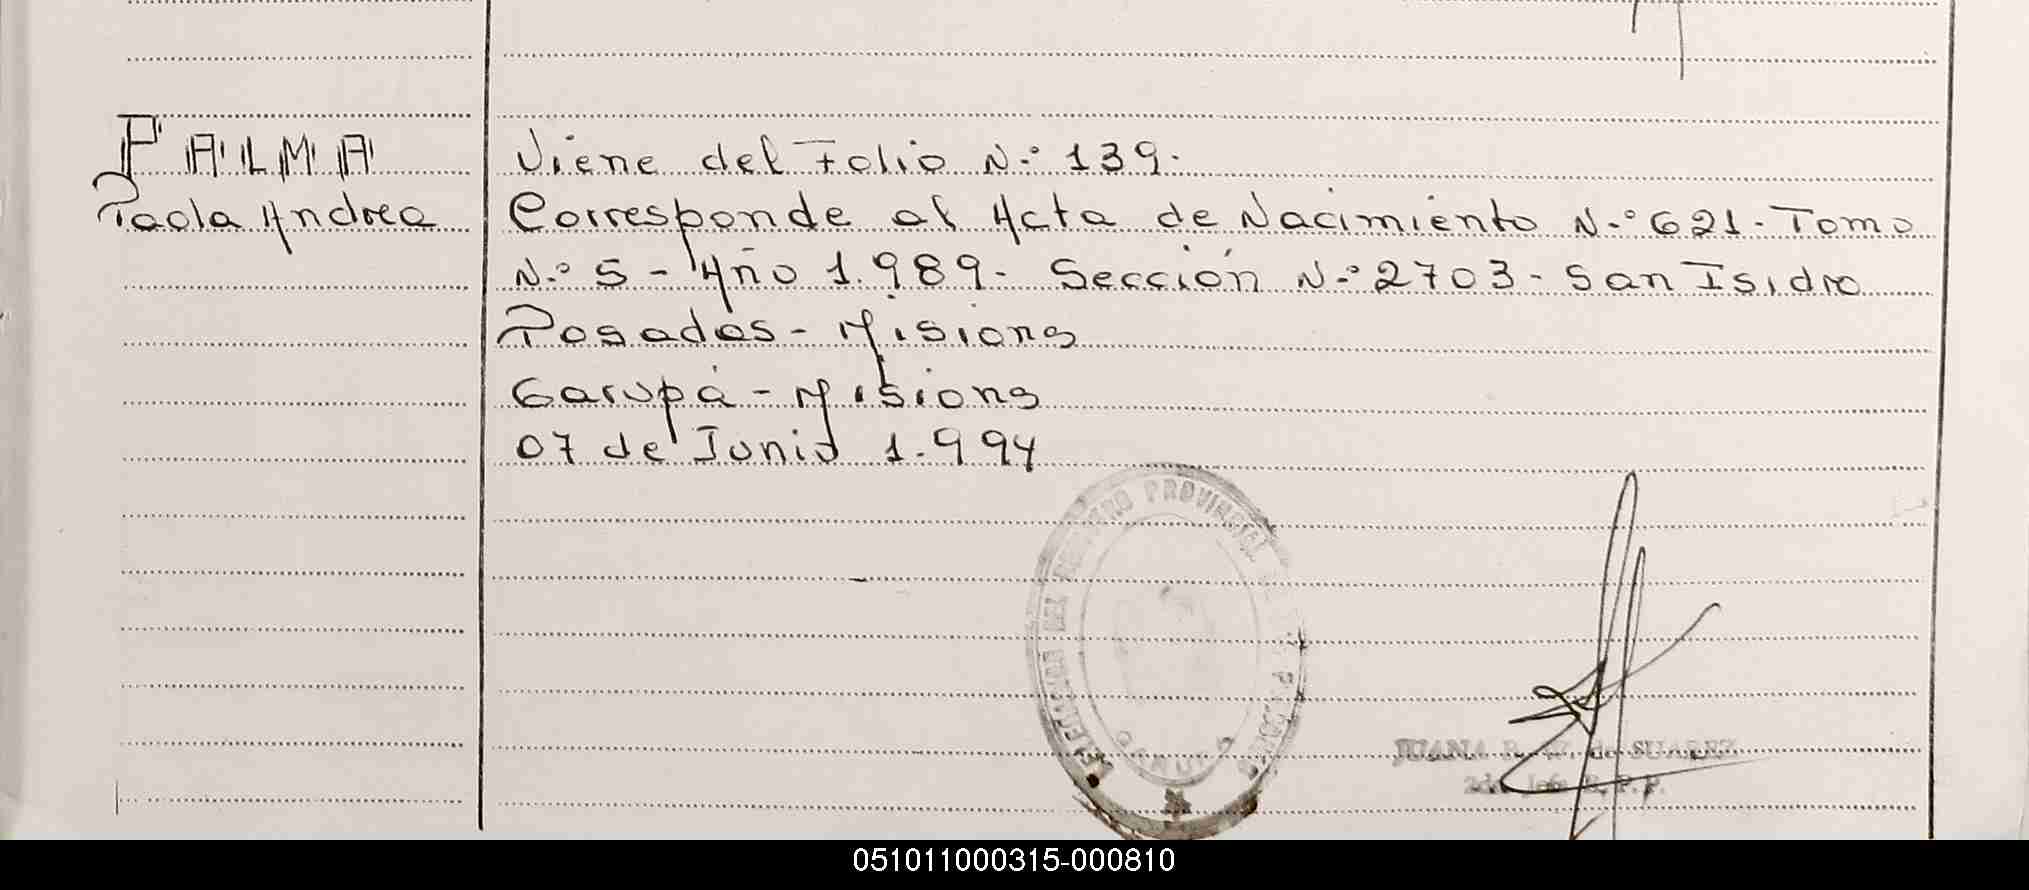 PALMA
Paola Andrea
Viene del Folio N.º 139.
Corresponde al Acta de Nacimiento N.º 621 - Tomo
N.º 5 - Año 1.989 - Sección N.º 2703 - San Isidro
Posadas - Misions
Garupá - Misions
07 de Junio 1.994
DELEGACION DEL REGISTRO PROVINCIAL DE LAS PERSONAS
GARUPA
JUANA R. de SUAREZ
2do. Jefe R.P.P.
051011000315-000810